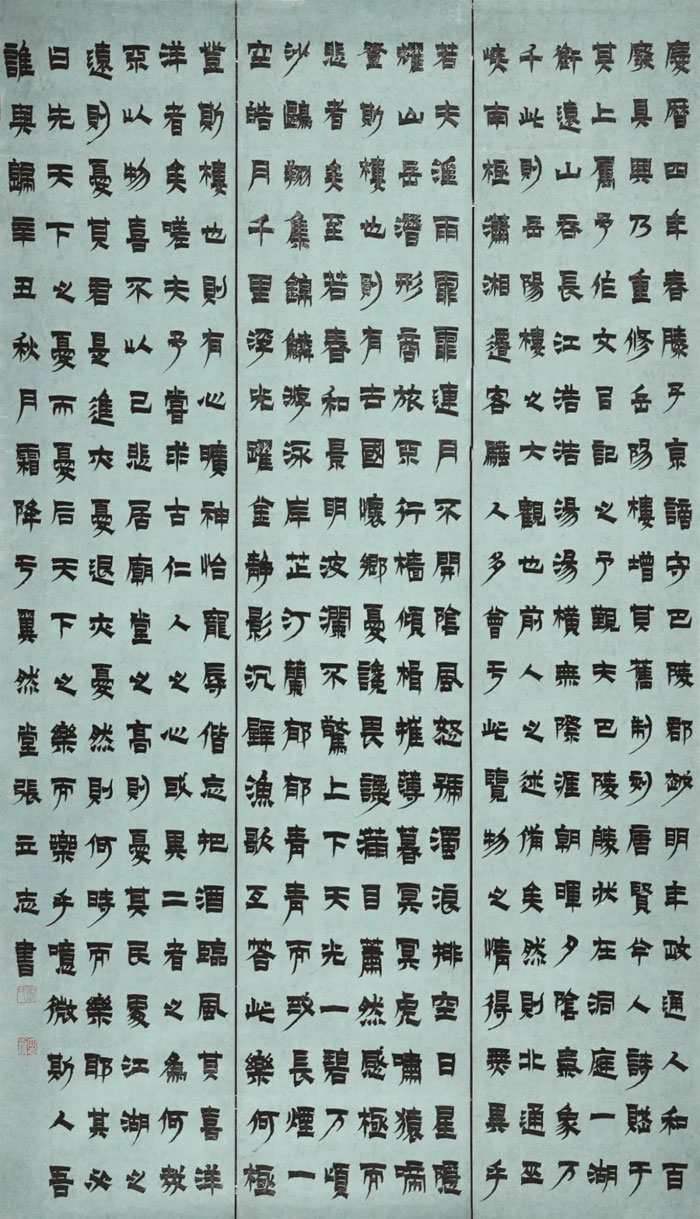 慶曆四年春滕子京謫守巴陵郡越明年政通人和百
廢具興乃重修岳陽樓增其舊制刻唐賢今人詩賦于
其上屬予作文以記之予觀夫巴陵勝狀在洞庭一湖
銜遠山吞長江浩浩湯湯橫無際涯朝暉夕陰氣象万
千此則岳陽樓之大觀也前人之述備矣然則北通巫
峽南極瀟湘遷客騷人多會于此覽物之情得無異乎
若夫淫雨霏霏連月不開陰風怒號濁浪排空日星隱
耀山岳潛形商旅不行檣傾楫摧薄暮冥冥虎嘯猿啼
登斯樓也則有去國懷鄉憂讒畏譏滿目蕭然感極而
悲者矣至若春和景明波瀾不驚上下天光一碧万頃
沙鷗翔集錦鱗游泳岸芷汀蘭郁郁青青而或長煙一
空皓月千里浮光躍金靜影沉璧漁歌互答此樂何極
登斯樓也則有心曠神怡寵辱偕忘把酒臨風其喜洋
洋者矣嗟夫予嘗求古仁人之心或異二者之為何哉
不以物喜不以己悲居廟堂之高則憂其民處江湖之
遠則憂其君是進亦憂退亦憂然則何時而樂耶其必
曰先天下之憂而憂后天下之樂而樂乎噫微斯人吾
誰與歸辛丑秋月霜降于翼然堂張立志書